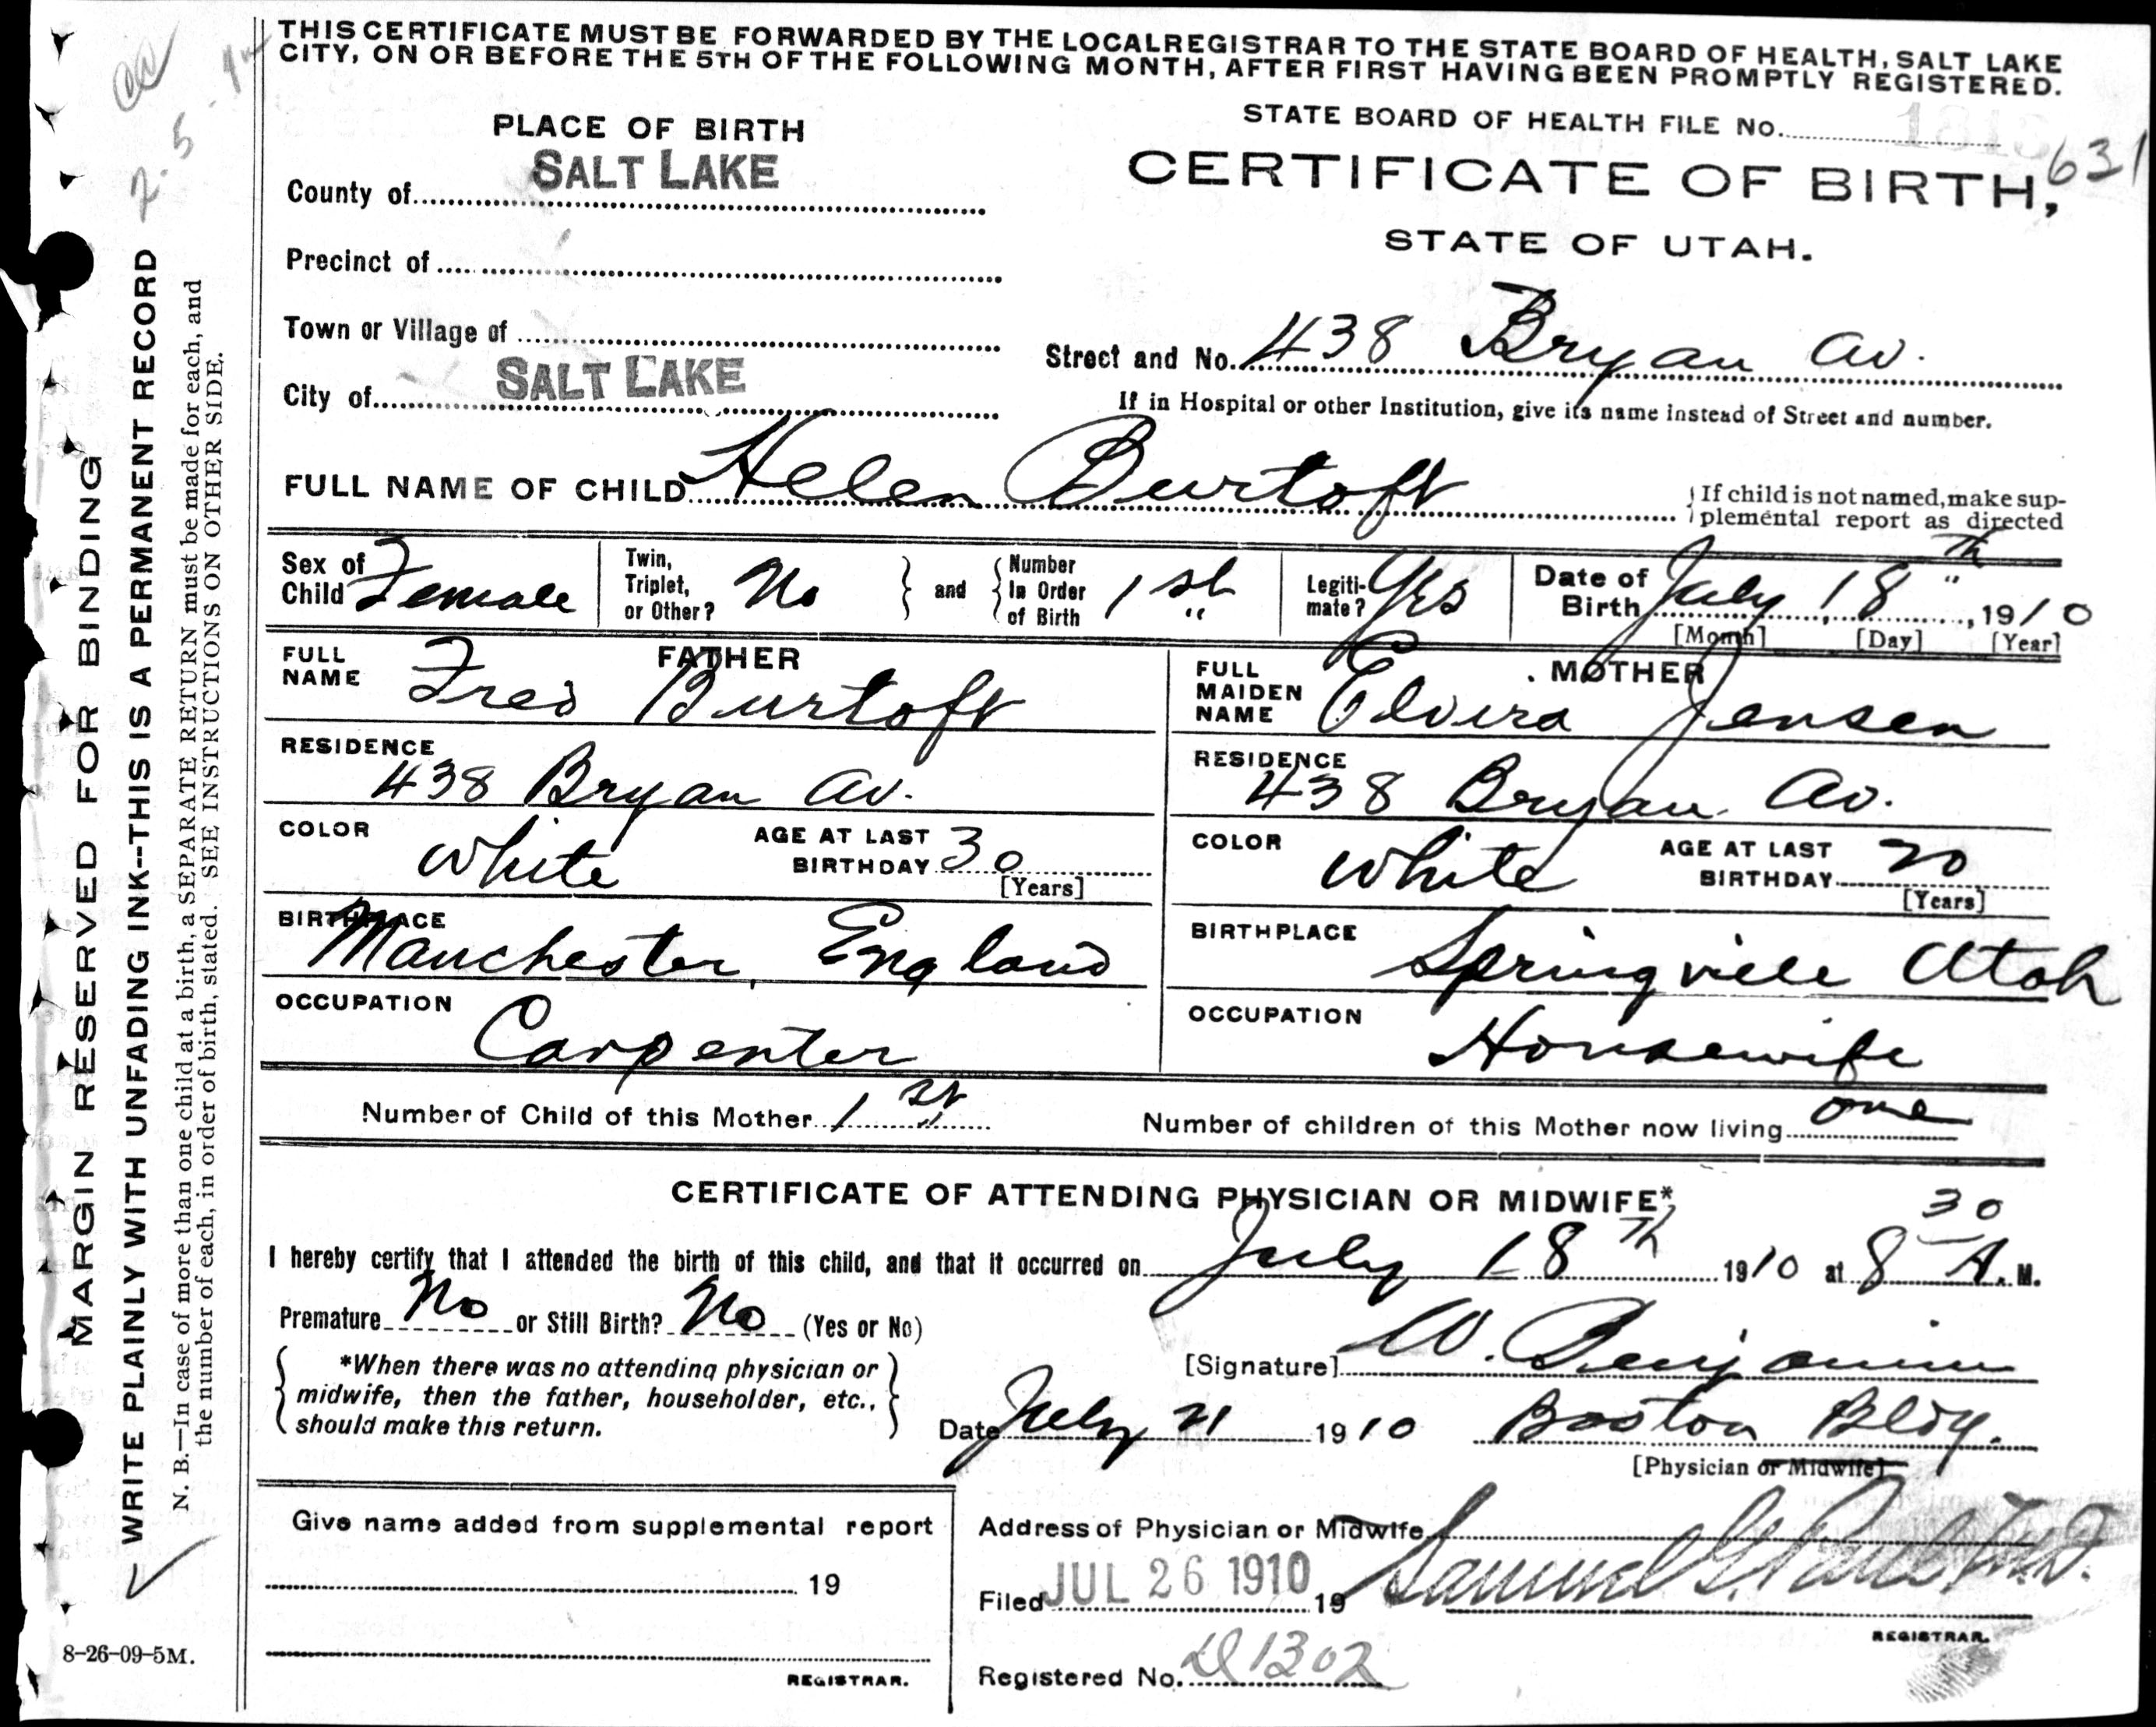 THIS CERTIFICATE MUST BE FORWARDED BY THE LOCAL REGISTRAR TO THE STATE BOARD OF HEALTH, SALT LAKE
CITY, ON OR BEFORE THE 5TH OF THE FOLLOWING MONTH, AFTER FIRST HAVING BEEN PROMPTLY REGISTERED.
PLACE OF BIRTH
County of SALT LAKE
Precinct of
Town or Village of
City of SALT LAKE
STATE BOARD OF HEALTH FILE No.
631
CERTIFICATE OF BIRTH,
STATE OF UTAH.
Street and No. 438 Bryan Av.
If in Hospital or other Institution, give its name instead of Street and number.
FULL NAME OF CHILD Helen Burtoft
If child is not named, make sup-
plemental report as directed
Sex of Child Female
Twin, Triplet, or Other? No
and Number In Order of Birth 1st
Legiti-mate? Yes
Date of Birth July 18th, 1910
[Month] [Day] [Year]
FATHER
FULL NAME Fred Burtoft
RESIDENCE
438 Bryan Av.
COLOR White AGE AT LAST BIRTHDAY 30
[Years]
BIRTHPLACE
Manchester, England
OCCUPATION
Carpenter
MOTHER
FULL MAIDEN NAME Elvira Jensen
RESIDENCE
438 Bryan Av.
COLOR White AGE AT LAST BIRTHDAY 20
[Years]
BIRTHPLACE
Springville Utah
OCCUPATION
Housewife
Number of Child of this Mother 1st
Number of children of this Mother now living one
CERTIFICATE OF ATTENDING PHYSICIAN OR MIDWIFE*
I hereby certify that I attended the birth of this child, and that it occurred on July 18th 1910 at 8 30 A. M.
Premature No or Still Birth? No (Yes or No)
*When there was no attending physician or
midwife, then the father, householder, etc.,
should make this return.
[Signature] W. Benjamin
Date July 21 1910 Boston Bldg.
[Physician or Midwife]
Give name added from supplemental report
19
REGISTRAR.
Address of Physician or Midwife
Filed JUL 26 1910 19 Samuel G. Paul M.D.
REGISTRAR.
Registered No. D1302
MARGIN RESERVED FOR BINDING
WRITE PLAINLY WITH UNFADING INK--THIS IS A PERMANENT RECORD
N. B.—In case of more than one child at a birth, a SEPARATE RETURN must be made for each, and
the number of each, in order of birth, stated. SEE INSTRUCTIONS ON OTHER SIDE.
8-26-09-5M.